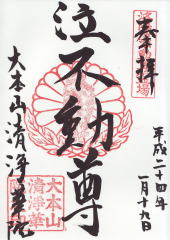 奉拝
平成二十四年
一月十九日
泣不動尊
大本山清浄華院
大本山
清浄華
院